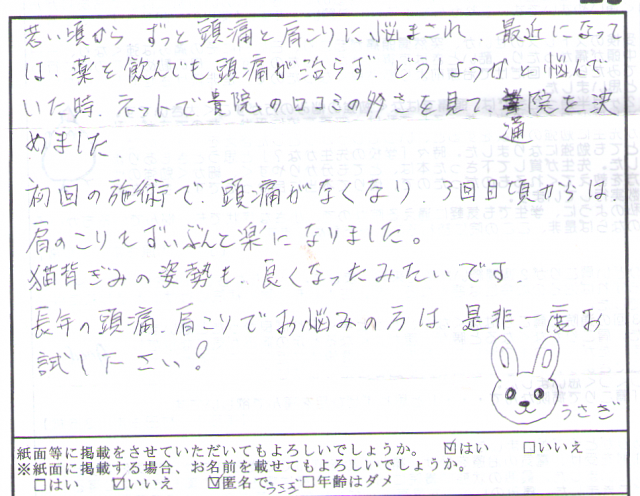 若い頃から ずっと頭痛と肩こりに悩まされ、最近になって
は、薬を飲んでも頭痛が治らず、どうしようかと悩んで
いた時、ネットで貴院の口コミの多さを見て、通院を決
めました。
初回の施術で、頭痛がなくなり、3回目頃からは、
肩のこりもずいぶんと楽になりました。
猫背ぎみの姿勢も、良くなったみたいです。
長年の頭痛、肩こりでお悩みの方は、是非、一度お
試し下さい!
うさぎ
紙面等に掲載をさせていただいてもよろしいでしょうか。 ☑はい □いいえ
※紙面に掲載する場合、お名前を載せてもよろしいでしょうか。
□はい ☑いいえ ☑匿名で うさぎ □年齢はダメ